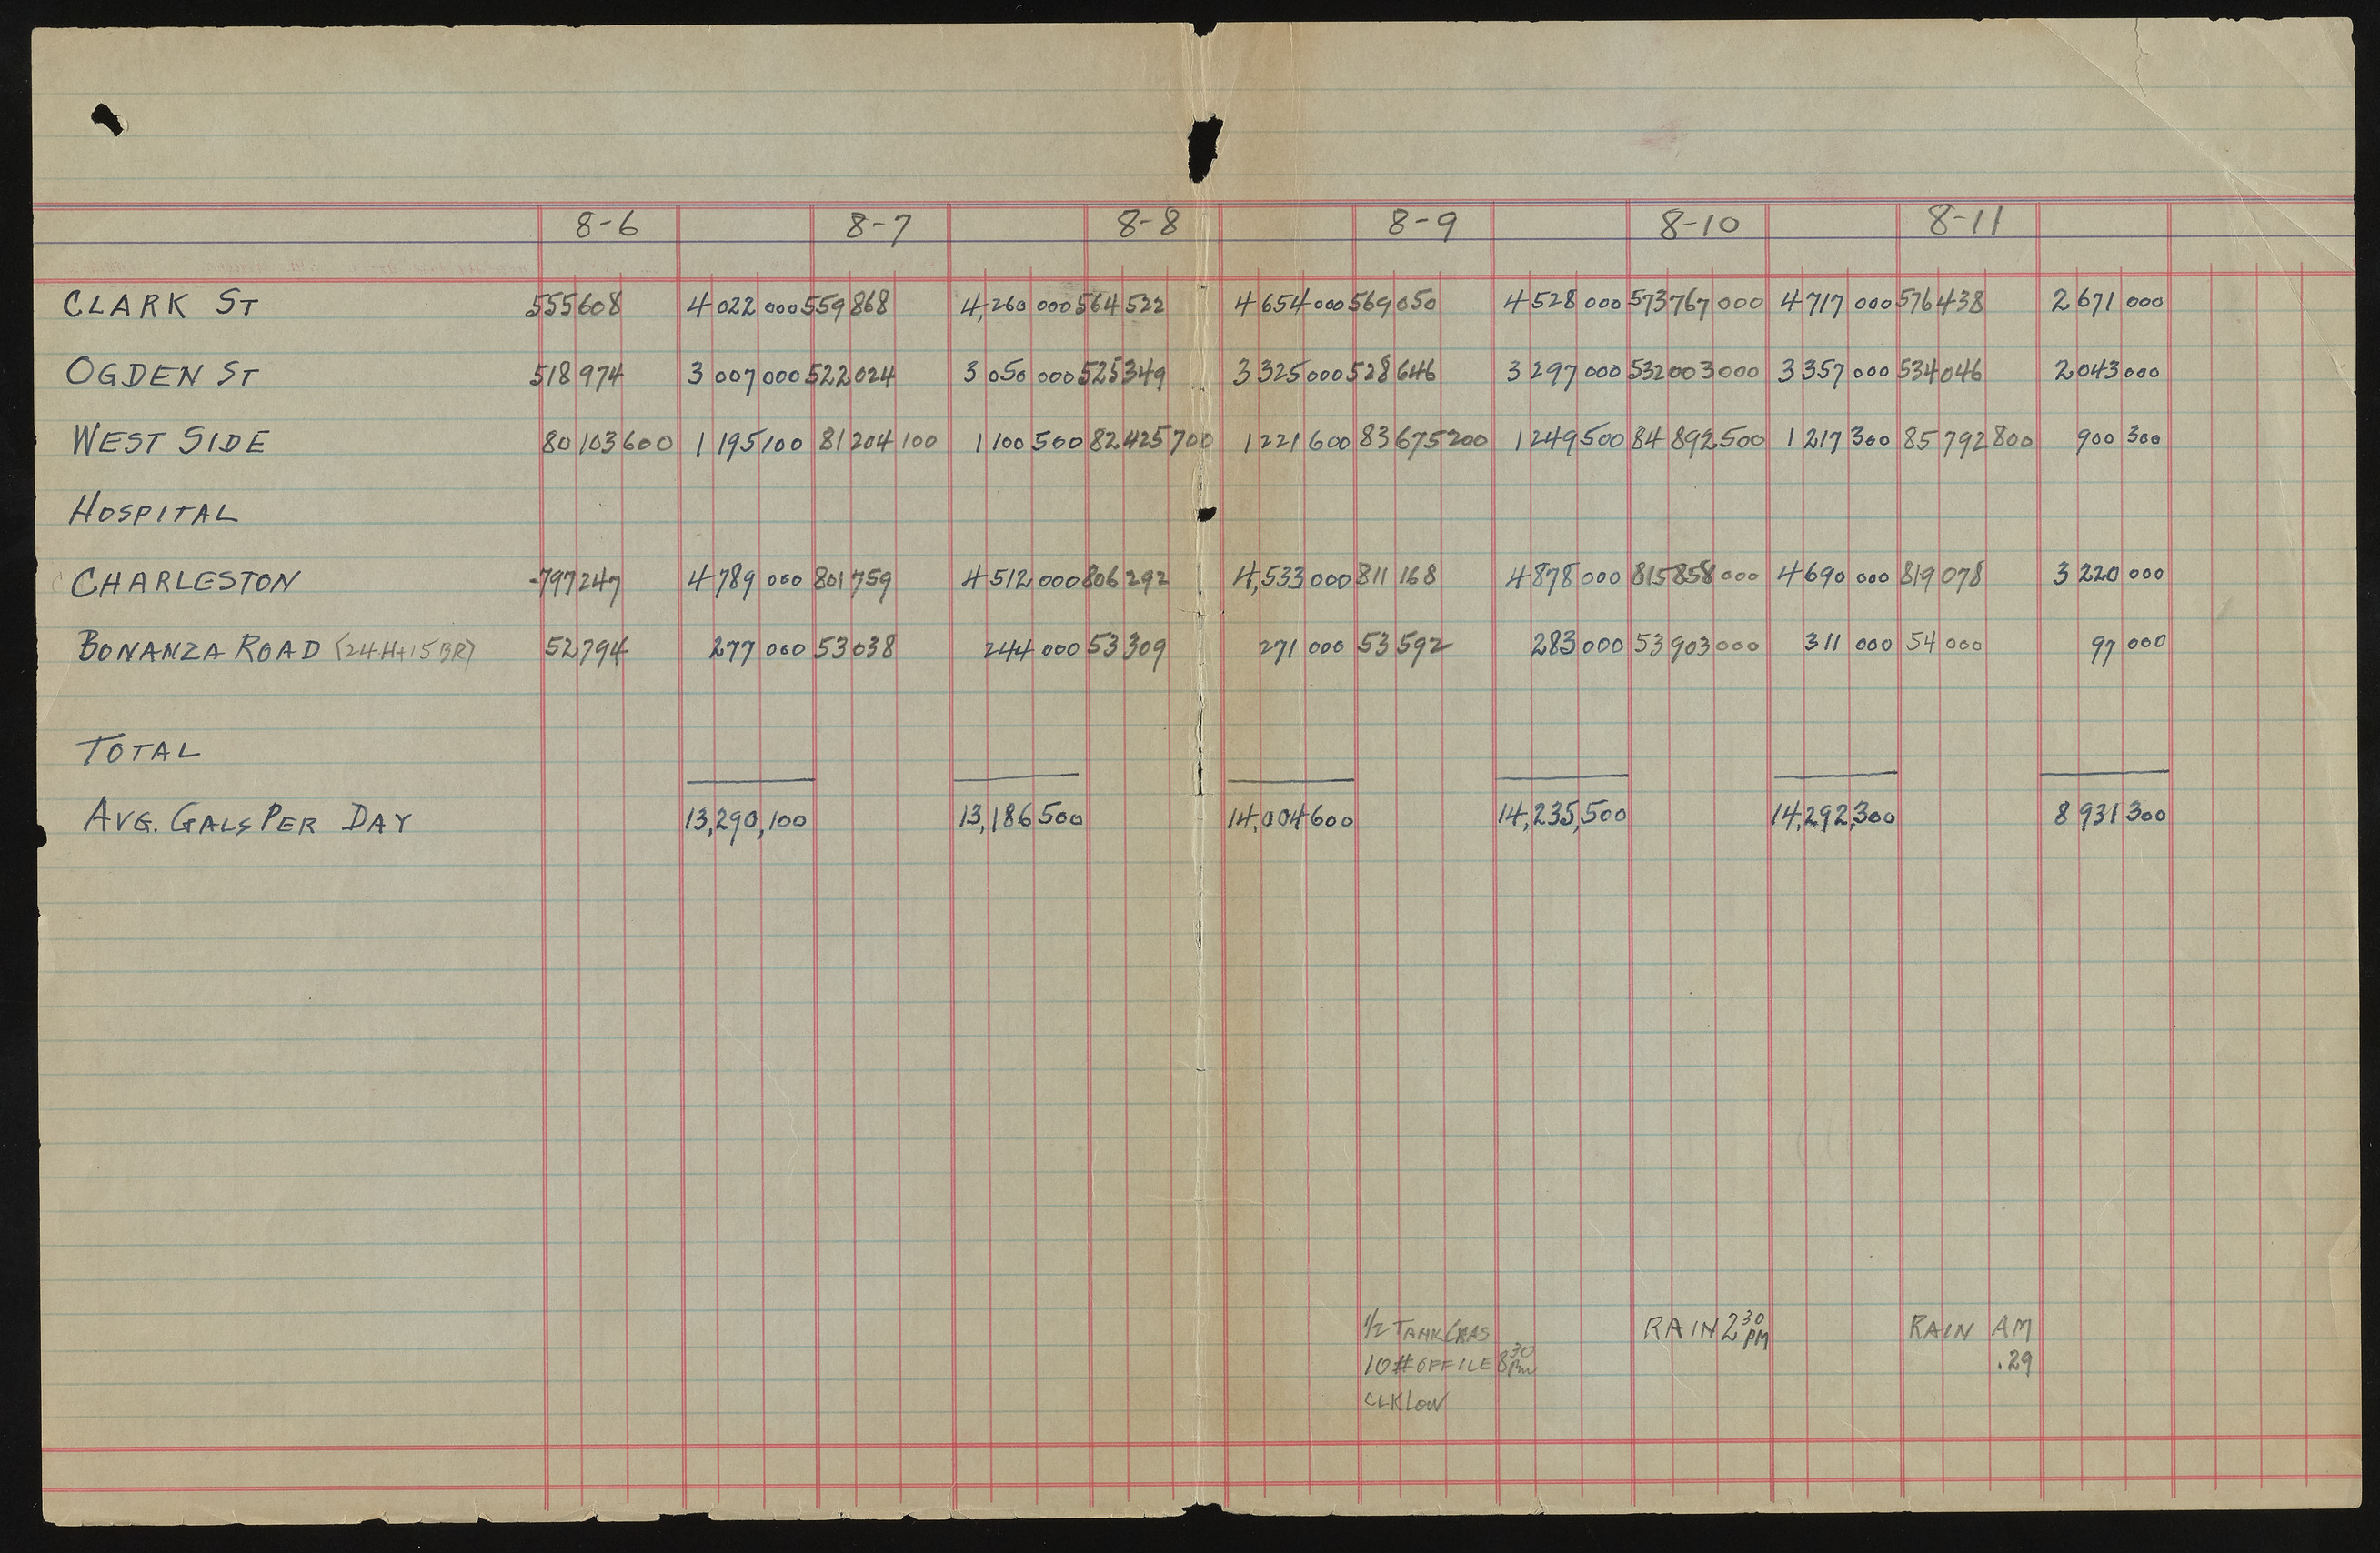 8-6 8-7 8-8 8-9 8-10 8-11
CLARK ST 555608 4 022 000 559868 4,260 000 564 522 4 654 000 569050 4 528 000 573767000 4 717 000 576438 2 671 000
OGDEN ST 518 974 3 007 000 522024 3 050 000 525349 3 325 000 528646 3 297 000 532003000 3 357 000 534046 2 043 000
WEST SIDE 80 103 600 1 195 100 81 204 100 1 100 500 82 425 700 1 221 600 83 675 200 1 249 500 84 892 500 1 217 300 85 792 800 900 300
HOSPITAL
CHARLESTON 797247 4 789 000 801759 4 512 000 806292 4,533 000 811 168 4 878 000 815858000 4 690 000 819078 3 220 000
BONANZA ROAD (24H+15BR) 52794 277 000 53038 244 000 53309 271 000 53592 283 000 53903000 311 000 54 000 97 000
TOTAL
AVG. GALS PER DAY 13,290,100 13,186 500 14,004 600 14,235,500 14,292,300 8 931 300
1/2 TANK GAS RAIN 2 30 PM RAIN AM
10# OFF ICE 8 30 .29
CLK LOW